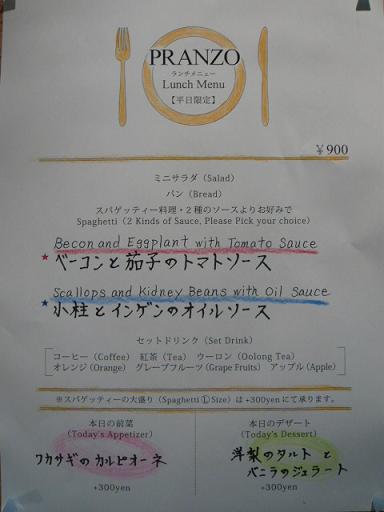 PRANZO
ランチメニュー
Lunch Menu
【平日限定】
¥900
ミニサラダ（Salad）
パン（Bread）
スパゲッティー料理・2種のソースよりお好みで
Spaghetti（2 Kinds of Sauce, Please Pick your choice）
Becon and Eggplant with Tomato Sauce
★ベーコンと茄子のトマトソース
Scallops and Kidney Beans with Oil Sauce
★小柱とインゲンのオイルソース
セットドリンク（Set Drink）
コーヒー（Coffee） 紅茶（Tea） ウーロン（Oolong Tea）
オレンジ（Orange） グレープフルーツ（Grape Fruits） アップル（Apple）
※スパゲッティーの大盛り（Spaghetti Ⓛ Size）は+300yenにて承ります。
本日の前菜
（Today's Appetizer）
ワカサギのカルピオーネ
+300yen
本日のデザート
（Today's Dessert）
洋梨のタルトと
バニラのジェラート
+300yen